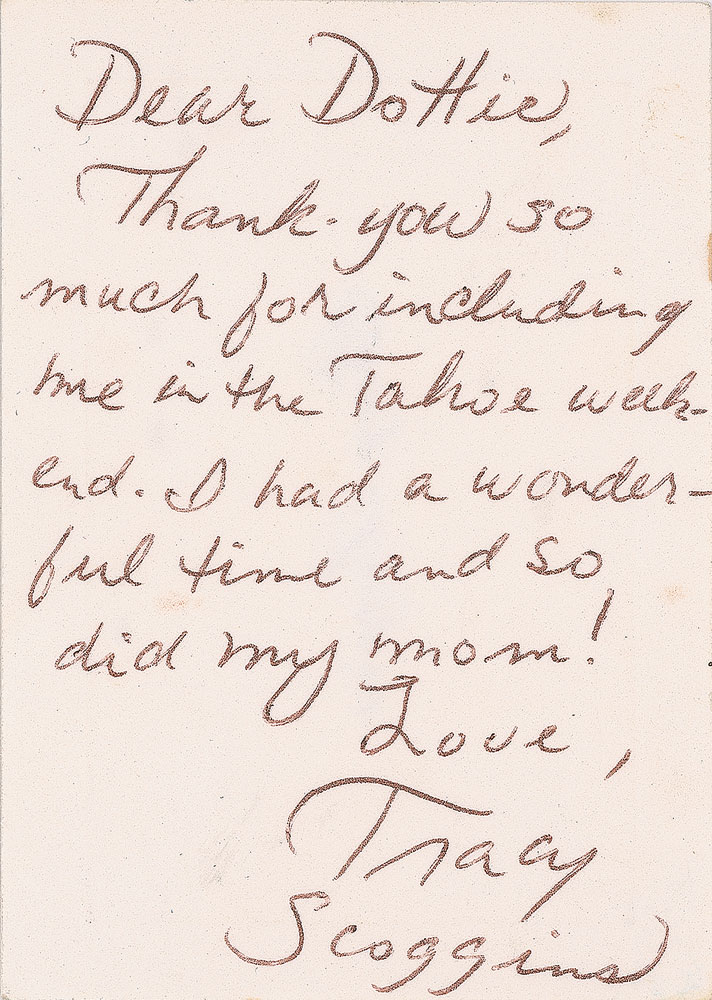 Dear Dottie,
Thank-you so
much for including
me in the Tahoe week-
end. I had a wonder-
ful time and so
did my mom!
Love,
Tracy
Scoggins